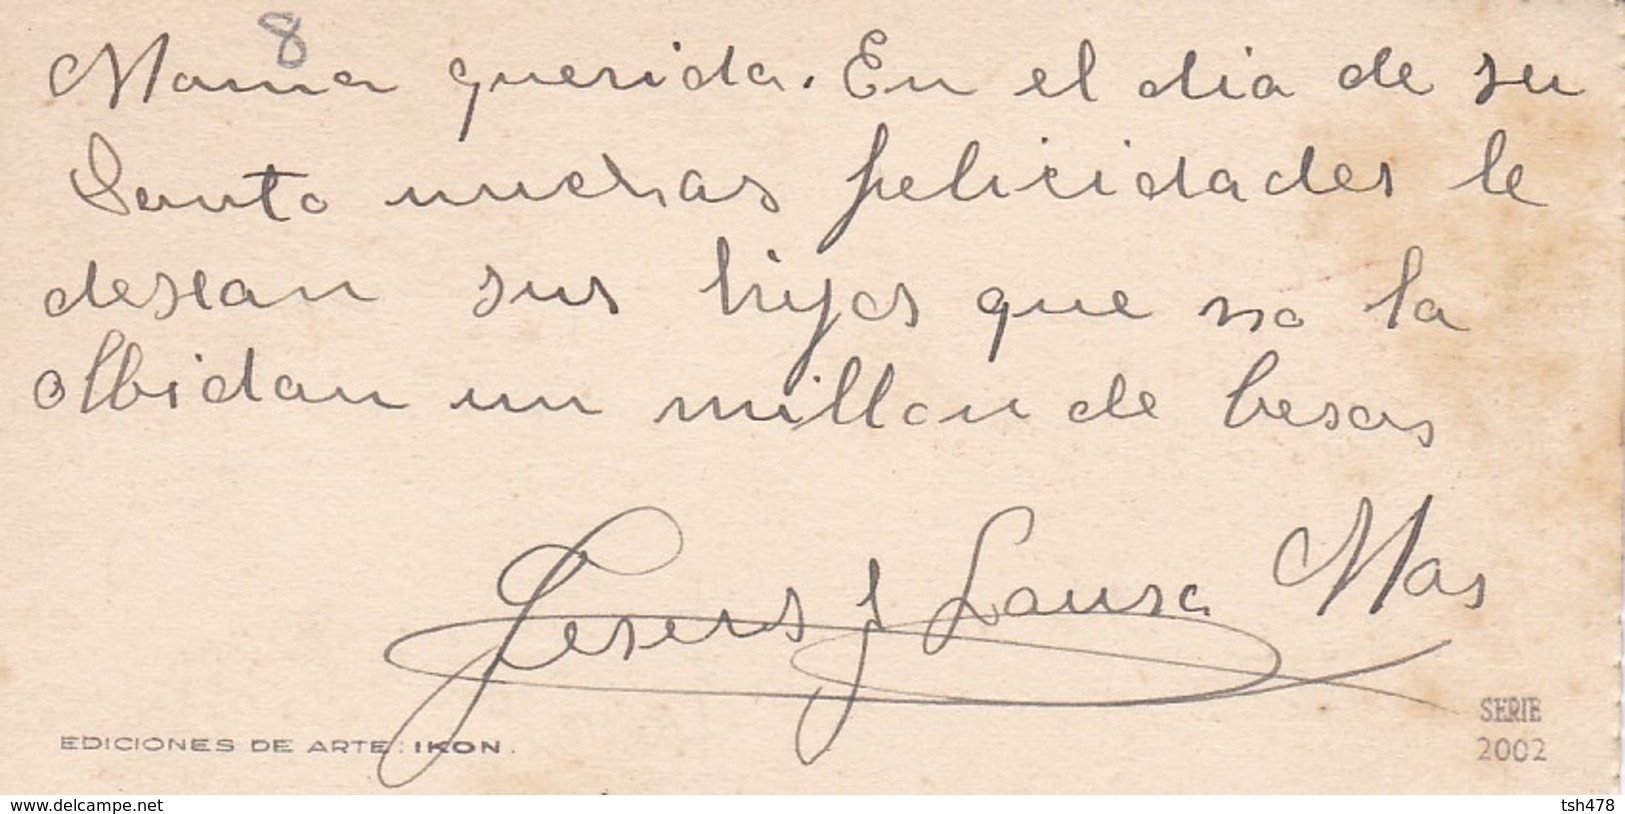 8
Mama querida. En el dia de su
Santo muchas felicidades le
desean sus hijos que no la
olbidan un millon de besos
Jesus y Laura Mas
EDICIONES DE ARTE: IKON.
SERIE
2002
www.delcampe.net
tsh478